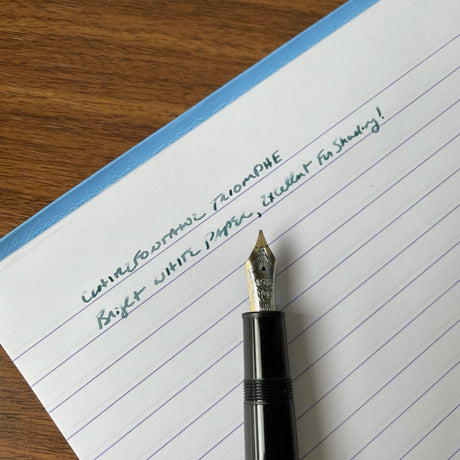 CLAIREFONTAINE TRIOMPHE
Bright WHITE PAPER, Excellent For Shading!